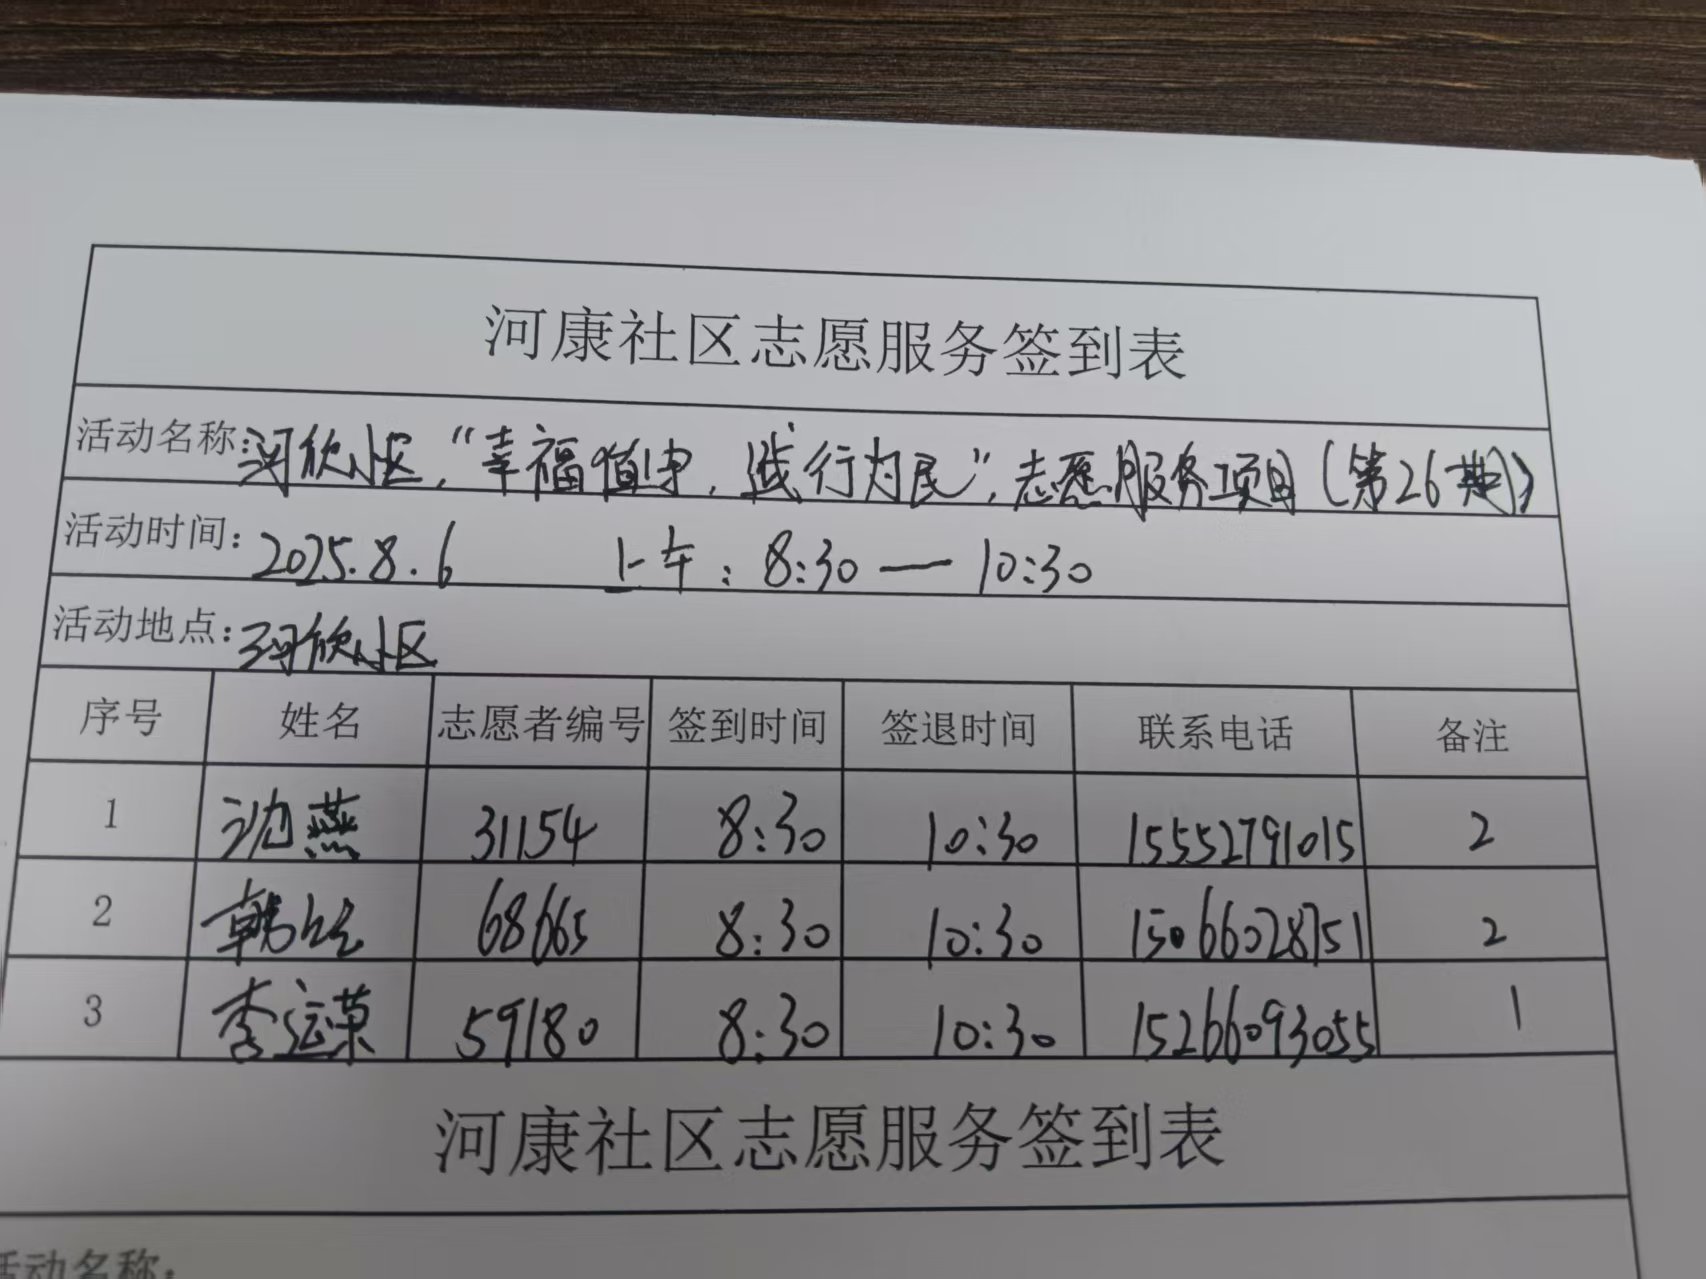 河康社区志愿服务签到表
活动名称:河欣小区,“幸福值守,践行为民”,志愿服务项目(第26期)
活动时间: 2025.8.6 上午: 8:30 — 10:30
活动地点: 河欣小区
序号 姓名 志愿者编号 签到时间 签退时间 联系电话 备注
1 沈燕 31154 8:30 10:30 15552791015 2
2 韩 68665 8:30 10:30 15066028751 2
3 李运荣 59180 8:30 10:30 15266093055 1
河康社区志愿服务签到表
活动名称: